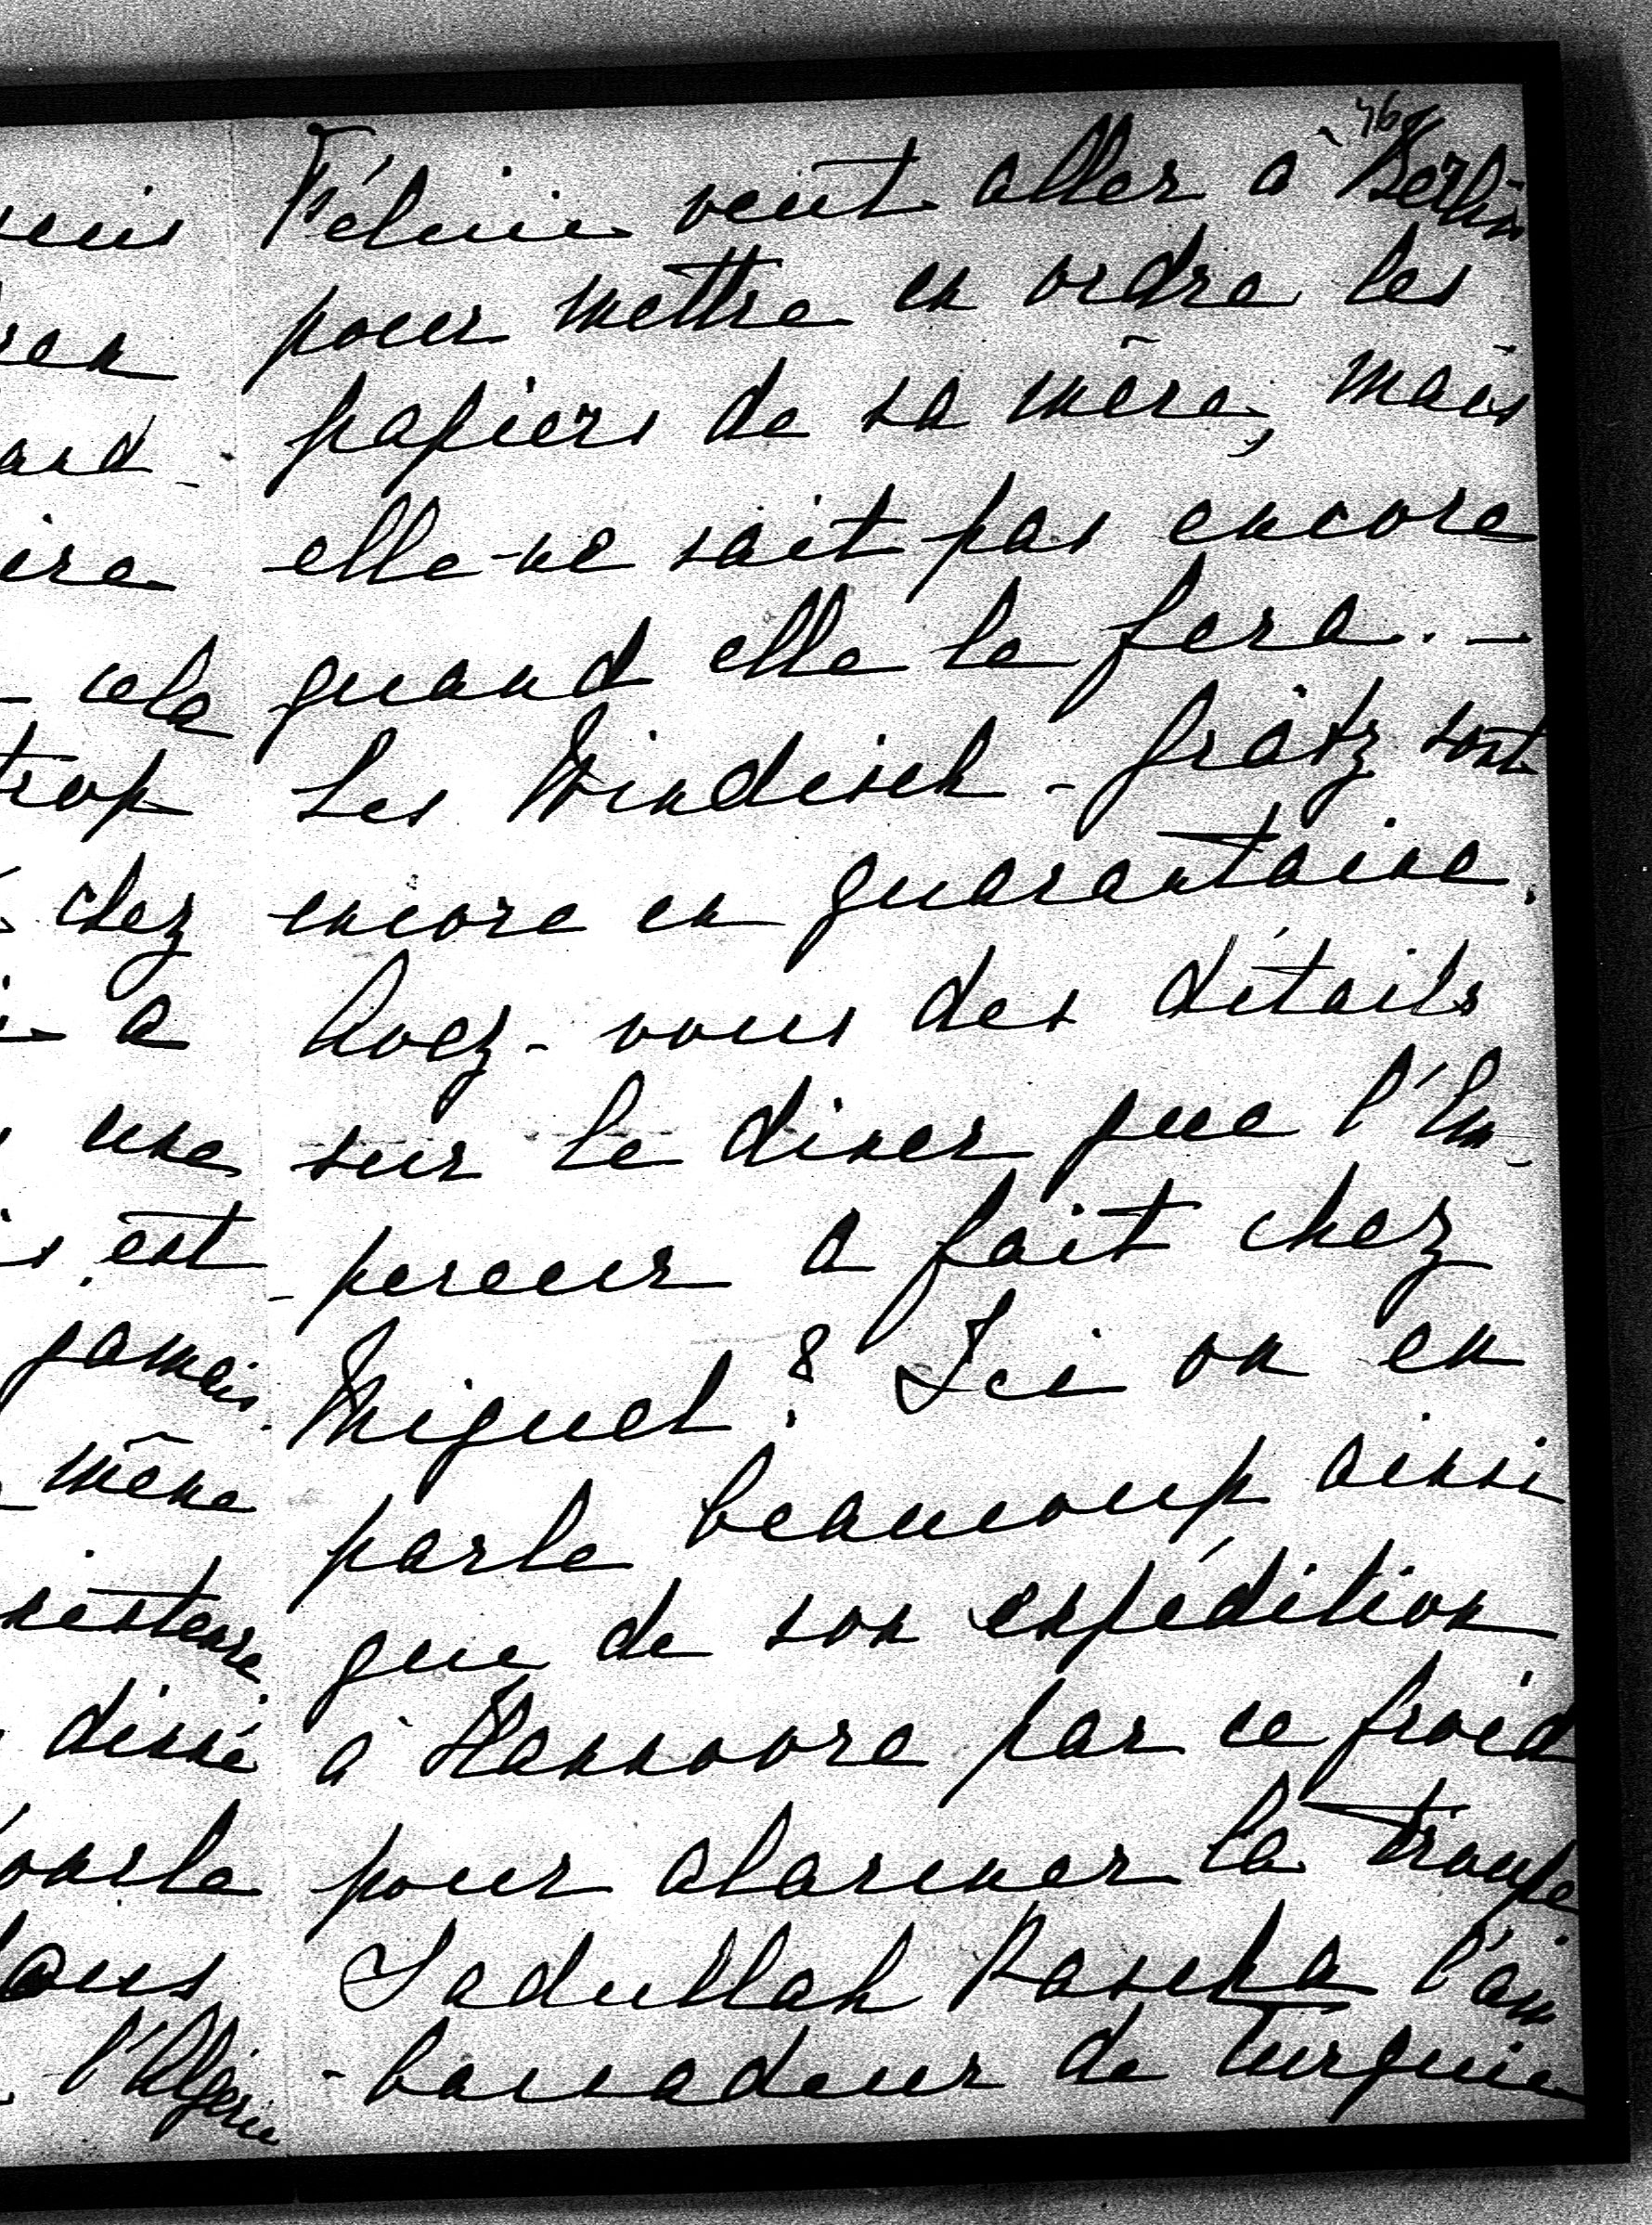 Félicie veut aller à Berlin
pour mettre en ordre les
papiers de sa mère, mais
elle ne sait pas encore
quand elle le fera. —
Les Windisch-Grätz sont
encore en quarantaine.
Avez-vous des détails
sur le diner que l'Em-
-pereur a fait chez
Miguel? Ici on en
parle beaucoup ainsi
que de son expédition
à Hannovre par ce froid
pour alarmer la troupe
Sadullah Pascha l'am
-bassadeur de Turquie
cela
trop
chez
a
une
est
jamais.
même
dîné
l'Algérie